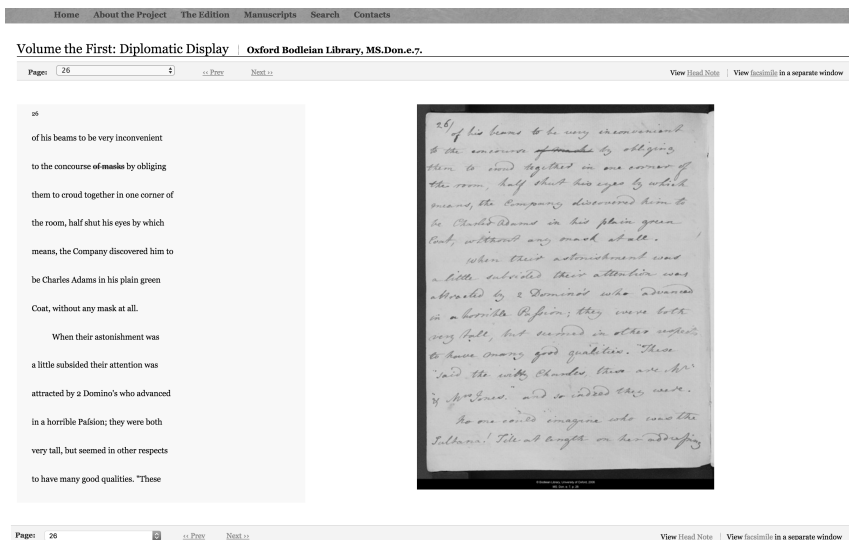 Home About the Project The Edition Manuscripts Search Contacts
Volume the First: Diplomatic Display | Oxford Bodleian Library, MS.Don.e.7.
Page: 26 ‹‹ Prev Next ›› View Head Note | View facsimile in a separate window
26
of his beams to be very inconvenient
to the concourse of masks by obliging
them to croud together in one corner of
the room, half shut his eyes by which
means, the Company discovered him to
be Charles Adams in his plain green
Coat, without any mask at all.
When their astonishment was
a little subsided their attention was
attracted by 2 Domino's who advanced
in a horrible Paſsion; they were both
very tall, but seemed in other respects
to have many good qualities. "These
26/ of his beams to be very inconvenient
to the concourse of masks by obliging
them to croud together in one corner of
the room, half shut his eyes by which
means, the Company discovered him to
be Charles Adams in his plain green
Coat, without any mask at all.
When their astonishment was
a little subsided their attention was
attracted by 2 Domino's who advanced
in a horrible Paſsion; they were both
very tall, but seemed in other respects
to have many good qualities. "These
"said the witty Charles, these are Mr
"& Mrs Jones." and so indeed they were.
No one could imagine who was the
Sultana! Till at length on her addreſsing
© Bodleian Library, University of Oxford, 2008
MS. Don. e. 7, p. 26
Page: 26 ‹‹ Prev Next ›› View Head Note | View facsimile in a separate window